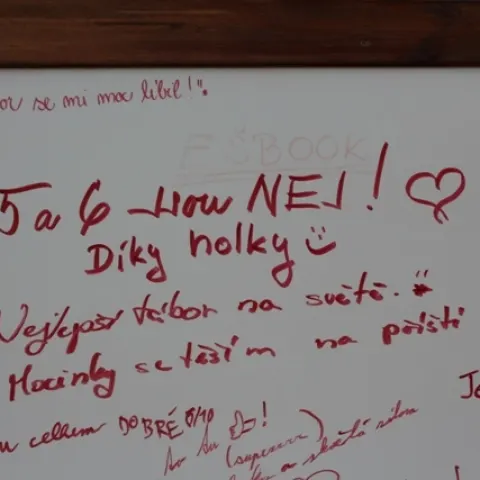 or se mi moc líbil!".
FŠBOOK
5 a 6 jsou NEJ!
Díky holky
Nejlepší tábor na světě.
Mocinky se těším na příští
celkem DOBRÉ 6/10
(super
a skvělá